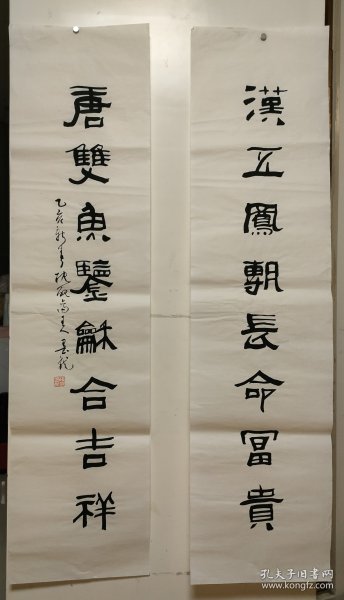 漢五鳳朝長命冨貴
唐雙魚鑒龢合吉祥
乙亥新春
孔夫子旧书网
www.kongfz.com